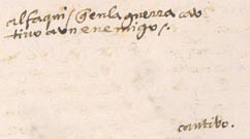 alfaqui / Gen la guerra cau
tivo a vn enemigo /.
cautibo.